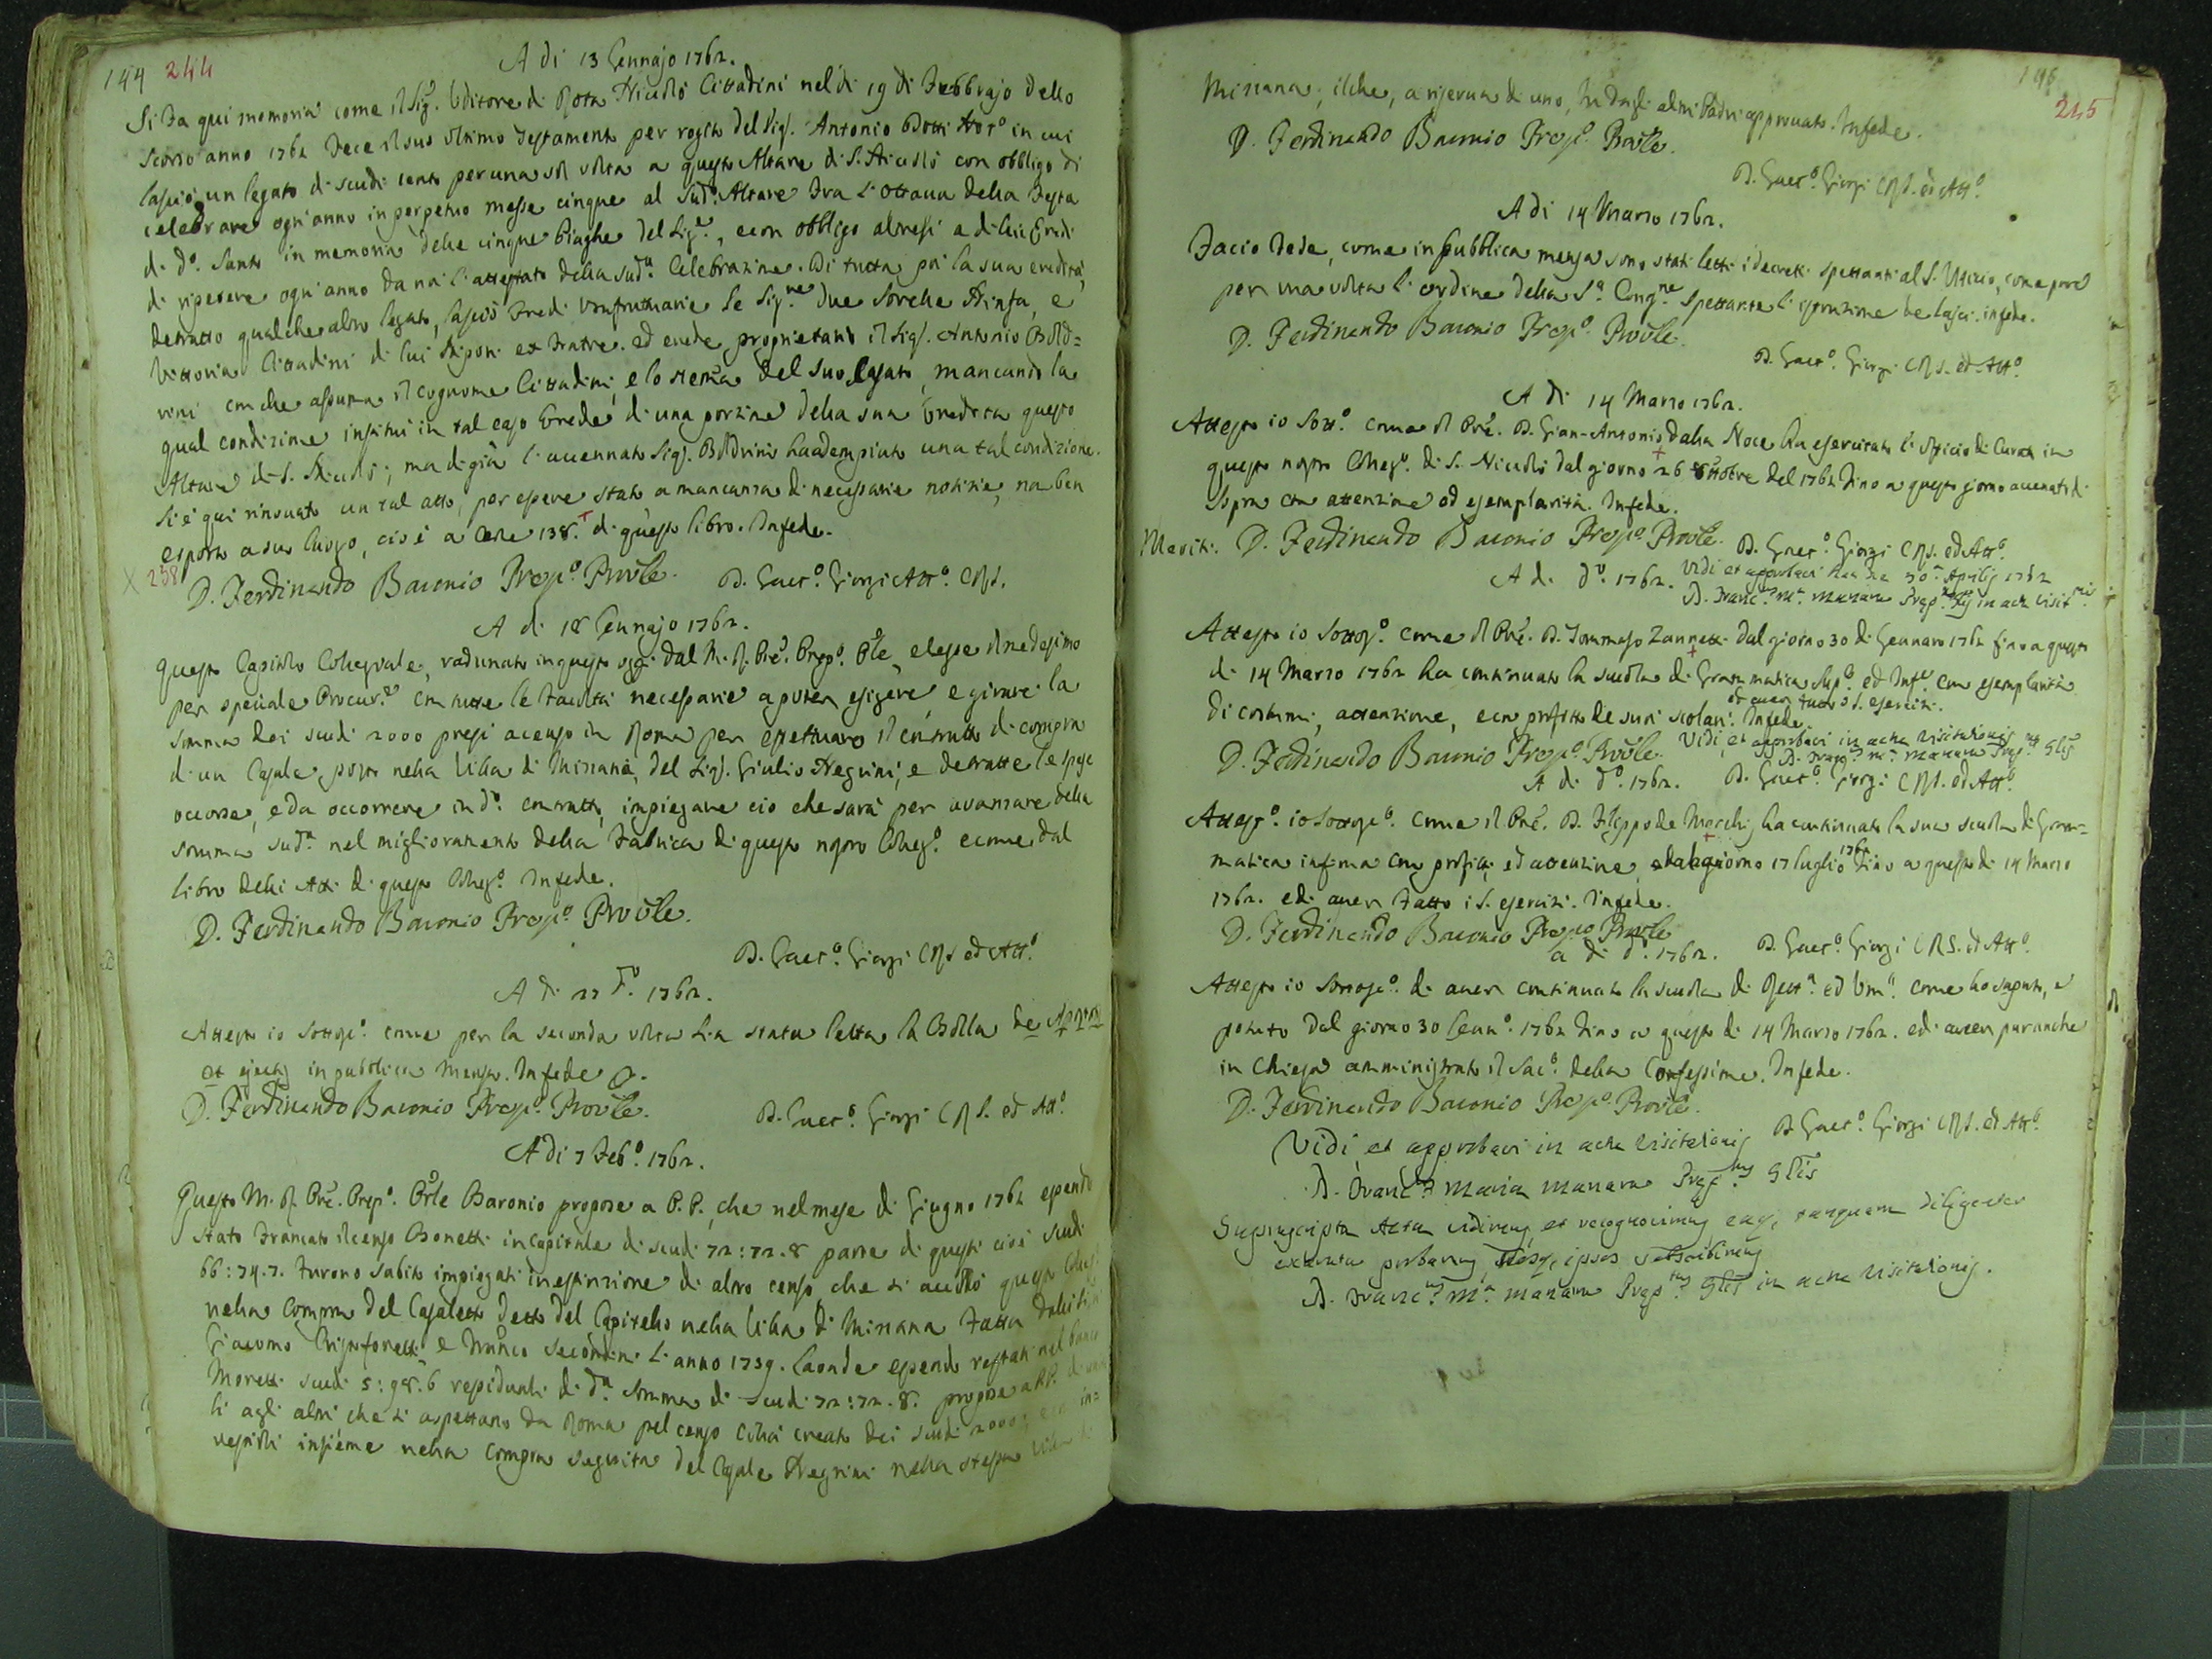 144 244
A di 13 Gennajo 1762.
Si fa qui memoria come il Sig.r Uditore di Rota Niccolò Cittadini nel dì 19 di Febbrajo dello
scorso anno 1761 fece il suo ultimo testamento per rogito del Sig.r Antonio Dotti Not.o in cui
lasciò un legato di scudi cento per una sol volta a questo Altare di S. Niccolò con obbligo di
celebrare ogn'anno in perpetuo messe cinque al sud.o Altare fra l'ottava della festa
di d.o Santo in memoria delle cinque Piaghe del Sig.re, e con obbligo altresì a di lui Eredi
di ripetere ogn'anno da noi l'attestato della sud.a Celebrazione. Di tutta poi la sua eredità,
detratto qualche altro legato, lasciò Eredi Usufruttuarie le Sig.re due Sorelle Ninfa, e
Vittoria Cittadini di lui Nipoti ex fratre. ed erede proprietario il Sig.r Antonio Bold=
rini con che assuma il cognome Cittadini, e lo stema del suo Casato, mancando la
qual condizione instituì in tal caso Erede di una porzione della sua Eredità questo
Altare di S. Niccolò; ma di già l'accennato Sig.r Boldrini ha adempiuto una tal condizione.
Si è qui rinovato un tal atto, per essere stato a mancanza di necessarie notizie, na ben
esposto a suo luogo, cioè a Carte 138. + di questo libro. In fede.
X 238
D. Ferdinando Baronio Prep.o Prov̄le. D. Gaet.o Giorgi Att.o CRS.
A di 18 Gennajo 1762.
Questo Capitolo Collegiale, radunato in questo oggi dal M. R. Pre. Prep.o Ple, elesse il medesimo
per speciale Procur.e con tutte le facoltà necessarie a poter esigere, e girare la
somma dei scudi 2000 presi a censo in Roma per effettuare il contratto di compra
d'un Casale, posto nella Villa di Misiana, del Sig.r Giulio Negrini, e detratte le spese
occorse, e da occorrere in d.o contratto, impiegare ciò che sarà per avanzare della
somma sud.a nel miglioramento della Fabrica di questo nostro Colleg.o e come dal
libro delli Atti di questo Colleg.o In fede.
D. Ferdinando Baronio Prep.o Prov̄le.
D. Gaet.o Giorgi CRS ed Att.o
A di 22 d.o 1762.
Attesto io Sottos.o come per la seconda volta si è statta letta la Bolla de Apostatis
et ejectis in pubblica mensa. In fede
D. Ferdinando Baronio Prep.o Prov̄le.
D. Gaet.o Giorgi CRS. ed Att.o
A di 7 Feb.o 1762.
Questo M. R. Pre. Prep.o Prle Baronio propose a P.P., che nel mese di Giugno 1761 essendo
stato francato il censo Bonetti in Capitale di scudi 72:72.8 parte di questi cioè scudi
66:74.2. furono subito impiegati in estinzione di altro censo, che si accollò questo Coll.o
nella Compra del Casaletto detto del Capitello nella Villa di Misiana fatta dalli Sig.ri
Giacomo Cristofoletti e Franc.o Secondini l'anno 1739. Laonde essendo restati nel banco
Moretti scudi 5:98.6 residuali di d.a somma di scudi 72:72.8. propose a PP. di
li agli altri che si aspettano da Roma pel censo Colà creato dei scudi 2000, in=
vestirli insieme nella compra seguita del Casale Negrini nella stessa Villa di
146
245
Misiana; il che, a riserva di uno, fu dagli altri Padri approvato. In fede.
D. Ferdinando Baronio Prep.o Prov̄le.
D. Gaet.o Giorgi CRS. ed Att.o
A di 14 Marzo 1762.
Faccio fede, come in pubblica mensa sono stati letti i decreti spettanti al S. Uffizio, come pure
per una volta l'ordine della S.a Cong.ne spettante l'istruzione de lasci. in fede.
D. Ferdinando Baronio Prep.o Prov̄le.
D. Gaet.o Giorgi CRS. ed Att.o
A di 14 Marzo 1762.
Attesto io Sott.o come il Pre. D. Gian-Antonio Dalla Noce ha esercitato l'officio di Curato in
questo nostro Colleg.o di S. Niccolò dal giorno + 26 ottobre del 1761 fino a questo giorno accenato di
sopra con attenzione ed esemplarità. In fede.
Meriti. D. Ferdinando Baronio Prep.o Prov̄le. D. Gaet.o Giorgi CRS. ed Att.o
A di d.o 1762. Vidi et approbavi hac die 30.a Aprilis 1762
D. Franc.us M.a Manara Prep.tus Glis in actu visit.nis
Attesto io Sottos.o come il Pre. D. Tommaso Zannetti dal giorno 30 di Gennaro 1761 fino a questo
di 14 Marzo 1762 + ha continuato la scuola di Grammatica Sup.e ed Inf.e con esemplarità
di costumi, attenzione, e con profitto de suoi scolari. In fede
et aver fatto i S. esercizi.
D. Ferdinando Baronio Prep.o Prov̄le. Vidi, et approbavi in actu visitationis
D. Franc.us M.a Manara Prep.tus Glis
A di d.o 1762. D. Gaet.o Giorgi CRS. ed Att.o
Attest.o io Sottosc.o come il Pre. D. Filippo de Marchi, ha continuato la sua scuola di Gram=
matica infima con profitto ed attenzione, + dal giorno 17 luglio 1761 fino a questo dì 14 Marzo
1762. e di aver fatto i S. esercizi. In fede.
D. Ferdinando Baronio Prep.o Prov̄le
a di d.o 1762. D. Gaet.o Giorgi CRS. ed Att.o
Attesto io Sottosc.o di aver continuato la scuola di Rett.a ed Um.à come ho saputo, e
potuto dal giorno 30 Genn.o 1761 fino a questo di 14 Marzo 1762. e di aver pur anche
in Chiesa amministrato il Sac.o della Confessione. In fede.
D. Ferdinando Baronio Prep.o Prov̄le.
D. Gaet.o Giorgi CRS. ed Att.o
Vidi, et approbavi in actu visitationis
D. Franc.us Maria Manara Prep.tus Glis
Suprascripta Acta vidimus, et recognovimus, eaque tanquam diligenter
exarata probamus, ipsos subscribimus
D. Franc.us M.a Manara Prep.tus Glis in actu visitationis.